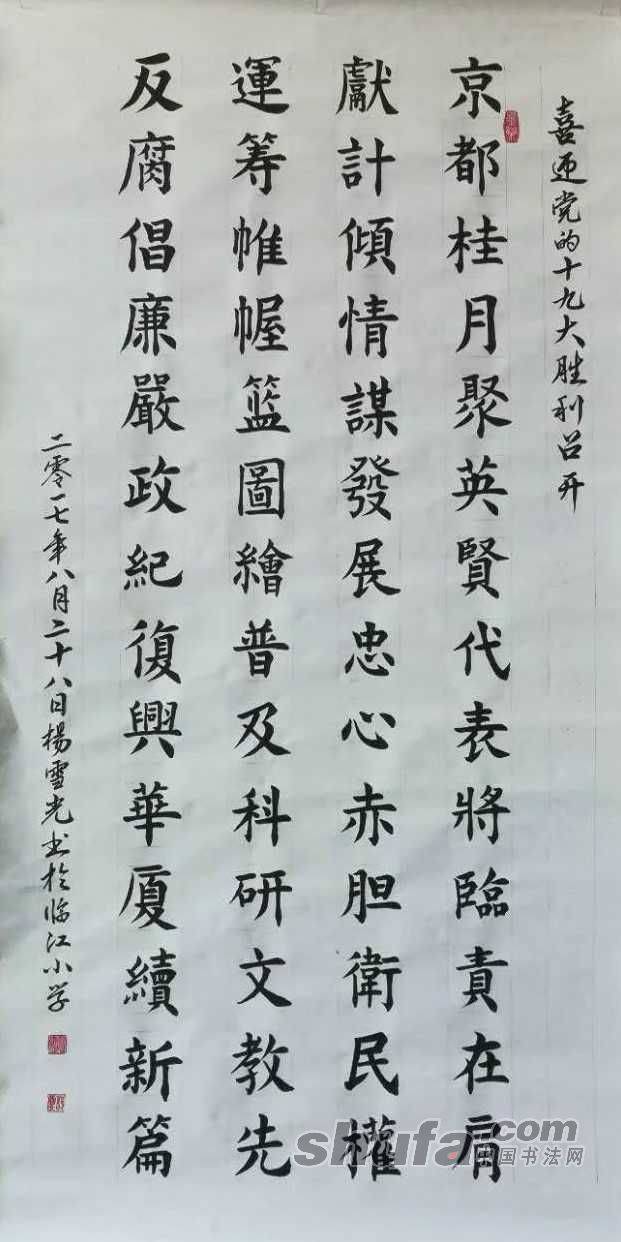 喜迎党的十九大胜利召开
京都桂月聚英賢代表將臨責在肩
獻計傾情謀發展忠心赤胆衛民權
運筹帷幄籃圖繪普及科研文教先
反腐倡廉嚴政紀復興華厦續新篇
二零一七年八月二十八日楊雪光书於临江小学
shufa.com
中国书法网